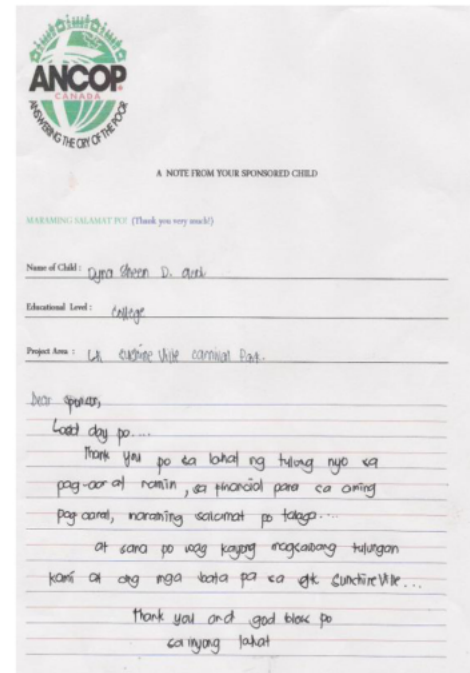 ANCOP
CANADA
ANSWERING THE CRY OF THE POOR
A NOTE FROM YOUR SPONSORED CHILD
MARAMING SALAMAT PO! (Thank you very much!)
Name of Child : Dyna Sheen D.
Educational Level : College
Project Area : Sunshine Ville
Dear sponsors,
Good day po....
Thank you po sa lahat ng tulong nyo sa
pag-aaral namin, sa financial para sa aming
pag aaral, maraming salamat po talaga....
at sana po wag kayong magsawang tulungan
kami at ang mga bata pa sa gk Sunshine Ville...
Thank you and god bless po
sa inyong lahat